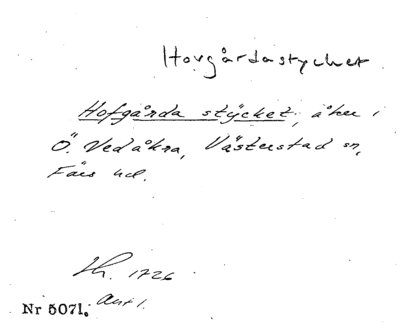 Hovgårdastycket
Hofgårda stycket, åker i
Ö. Vedåkra, Västerstad sn,
Färs hd.
Lh. 1726
Ant 1.
Nr 5071.